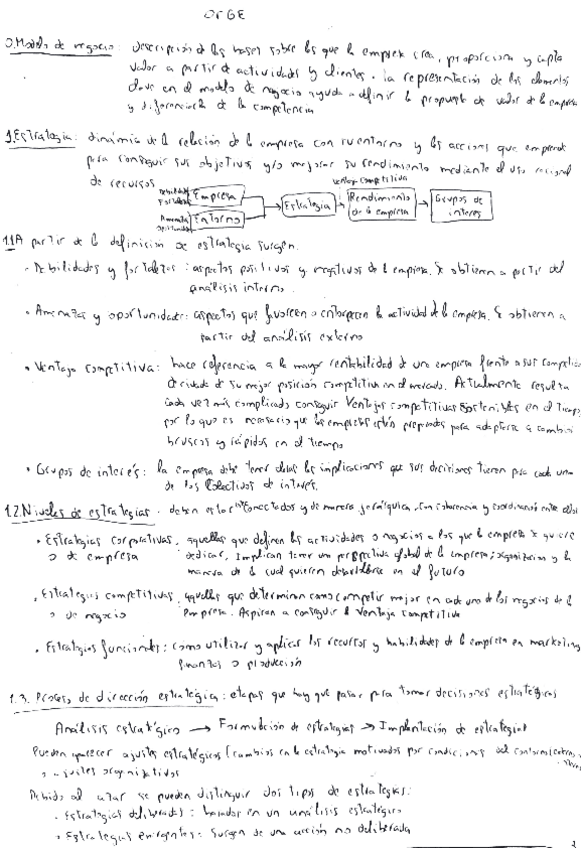 OrGE
0. Modelo de negocio: descripción de las bases sobre las que la empresa crea, proporciona y capta
valor a partir de actividades y clientes. La representación de los elementos
clave en el modelo de negocio ayuda a definir la propuesta de valor de la empresa
y diferenciarla de la competencia
1. Estrategia: dinámica de la relación de la empresa con su entorno y las acciones que emprende
para conseguir sus objetivos y/o mejorar su rendimiento mediante el uso racional
de recursos
Debilidades Fortalezas Empresa
Amenazas oportunidades Entorno
Estrategia
ventaja competitiva
Rendimiento de la empresa
Grupos de interes
1.1 A partir de la definición de estrategia surgen:
• Debilidades y fortalezas: aspectos positivos y negativos de la empresa. Se obtienen a partir del
análisis interno.
• Amenazas y oportunidades: aspectos que favorecen o entorpecen la actividad de la empresa. Se obtienen a
partir del análisis externo
• Ventaja competitiva: hace referencia a la mayor rentabilidad de una empresa frente a sus
derivada de su mejor posición competitiva en el mercado. Actualmente resulta
cada vez más complicado conseguir Ventajas competitivas sostenibles en el tiempo,
por lo que es necesario que las empresas estén preparadas para adaptarse a cambios
bruscos y rápidos en el tiempo
• Grupos de interés: la empresa debe tener claras las implicaciones que sus decisiones tienen para cada uno
de los colectivos de interés.
1.2. Niveles de estrategias. deben estar interconectados y de manera jerárquica, con coherencia y coordinación entre ellos
• Estrategias corporativas, aquellas que definen las actividades o negocios a los que la empresa se quiere
o de empresa dedicar, Implican tener una perspectiva global de la empresa; organización y la
manera de la cual quieren desarrollarse en el futuro
• Estrategias competitivas, aquellas que determinan como competir mejor en cada uno de los negocios de la
o de negocio empresa. Aspiran a conseguir la ventaja competitiva
• Estrategias funcionales: como utilizar y aplicar los recursos y habilidades de la empresa en marketing
finanzas o producción
1.3. Proceso de dirección estratégica: etapas que hay que pasar para tomar decisiones estratégicas
Análisis estratégico → Formulación de estrategias → Implantación de estrategias
Pueden aparecer ajustes estratégicos (cambios en la estrategia motivados por condiciones del
o ajustes organizativos
Debido al azar se pueden distinguir dos tipos de estrategias:
• Estrategias deliberadas: basadas en un análisis estratégico
• Estrategias emergentes: surgen de una acción no deliberada